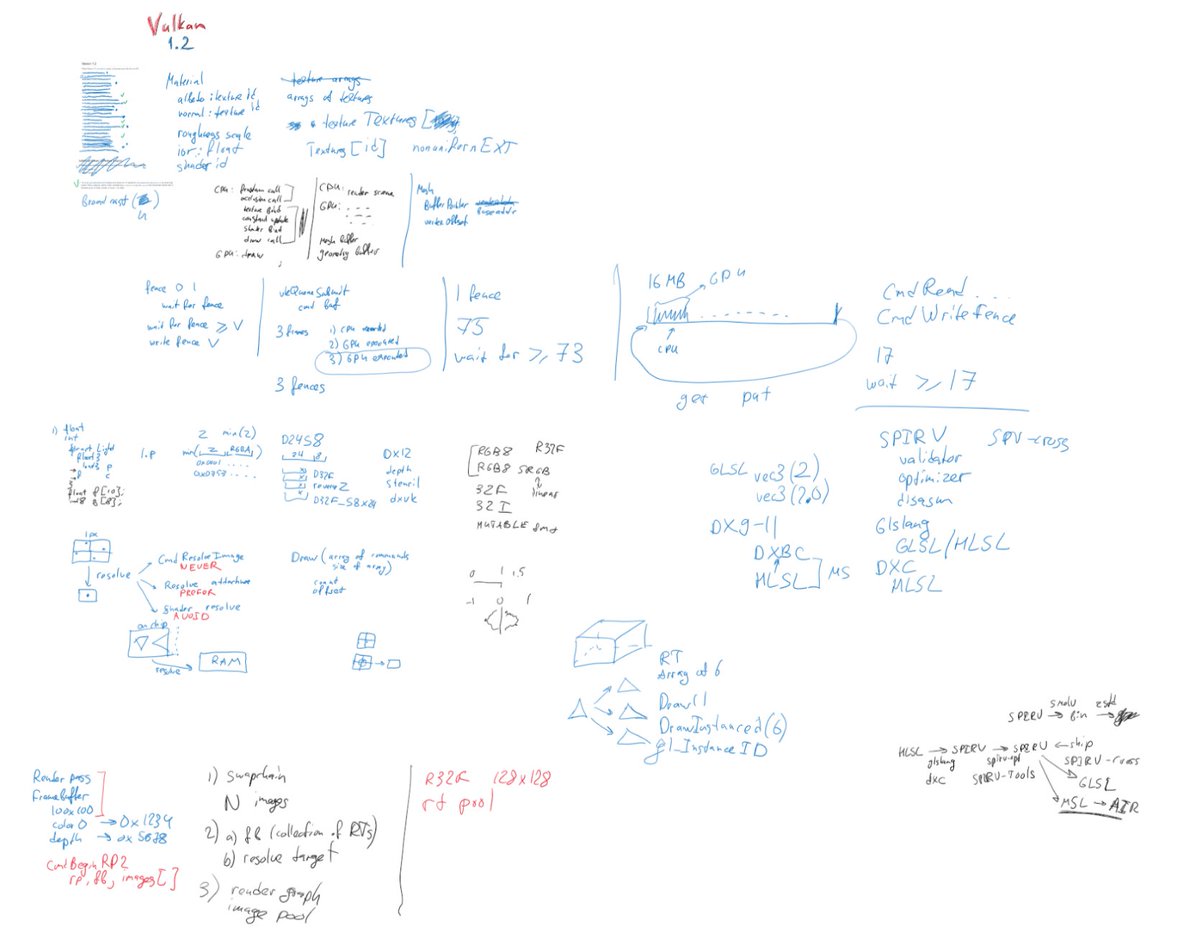 Vulkan
1.2
Material
albedo : texture id
normal : texture id
roughness scale
ior : float
shader id
texture arrays
arrays of textures
texture Textures [
Textures [id] nonuniformEXT
Broadcast (
4
CPU: frustum cull
occlusion cull
texture bind
constant update
shader bind
draw call
GPU: draw
CPU: render scene
GPU: - - -
Mesh buffer
geometry buffer
Mesh
Buffer Pointer
vertex offset
fence 0 1
wait for fence
wait for fence ≥ V
write fence V
vkQueueSubmit
cmd buf
3 frames
1) CPU recorded
2) GPU executed
3) GPU executed
3 fences
1 fence
75
wait for ≥ 73
16 MB
GPU
CPU
get put
CmdRead ....
CmdWriteFence
17
wait ≥ 17
1) float
int
struct Light
float3
float3 p
p c
float f[10];
f8 B[8];
l.p
2 min(2)
min(2, RGBA)
D24S8
24 8
D32F
reverse Z
D32F_S8X24
DX12
depth
stencil
dxvk
RGB8 R32F
RGB8 SRGB
32F linear
32 I
MUTABLE fmt
GLSL vec3(2)
vec3(2.0)
DX9-11
DXBC
HLSL
MS
SPIRV SPV-cross
validator
optimizer
disasm
Glslang
GLSL/HLSL
DXC
HLSL
1px
resolve
CmdResolveImage
NEVER
Resolve attachment
PREFER
Shader resolve
AVOID
on chip
resolve
RAM
Draw (array of commands
size of array)
count
offset
0 1 1,5
-1 0 1
RT
Array of 6
Draw()
DrawInstanced(6)
gl_InstanceID
smolv zstd
SPIRV → bin →
HLSL → SPIRV → SPIRV ← ship
glslang spirv-opt SPIRV-cross
dxc SPIRV-Tools
GLSL
MSL → AIR
Render pass
Framebuffer
100x100
color0 → 0x1234
depth → 0x5678
CmdBeginRP2
rp, fb, images[]
1) swapchain
N images
2) a) fb (collection of RTs)
b) resolve target
3) render graph
image pool
R32F 128x128
rt pool